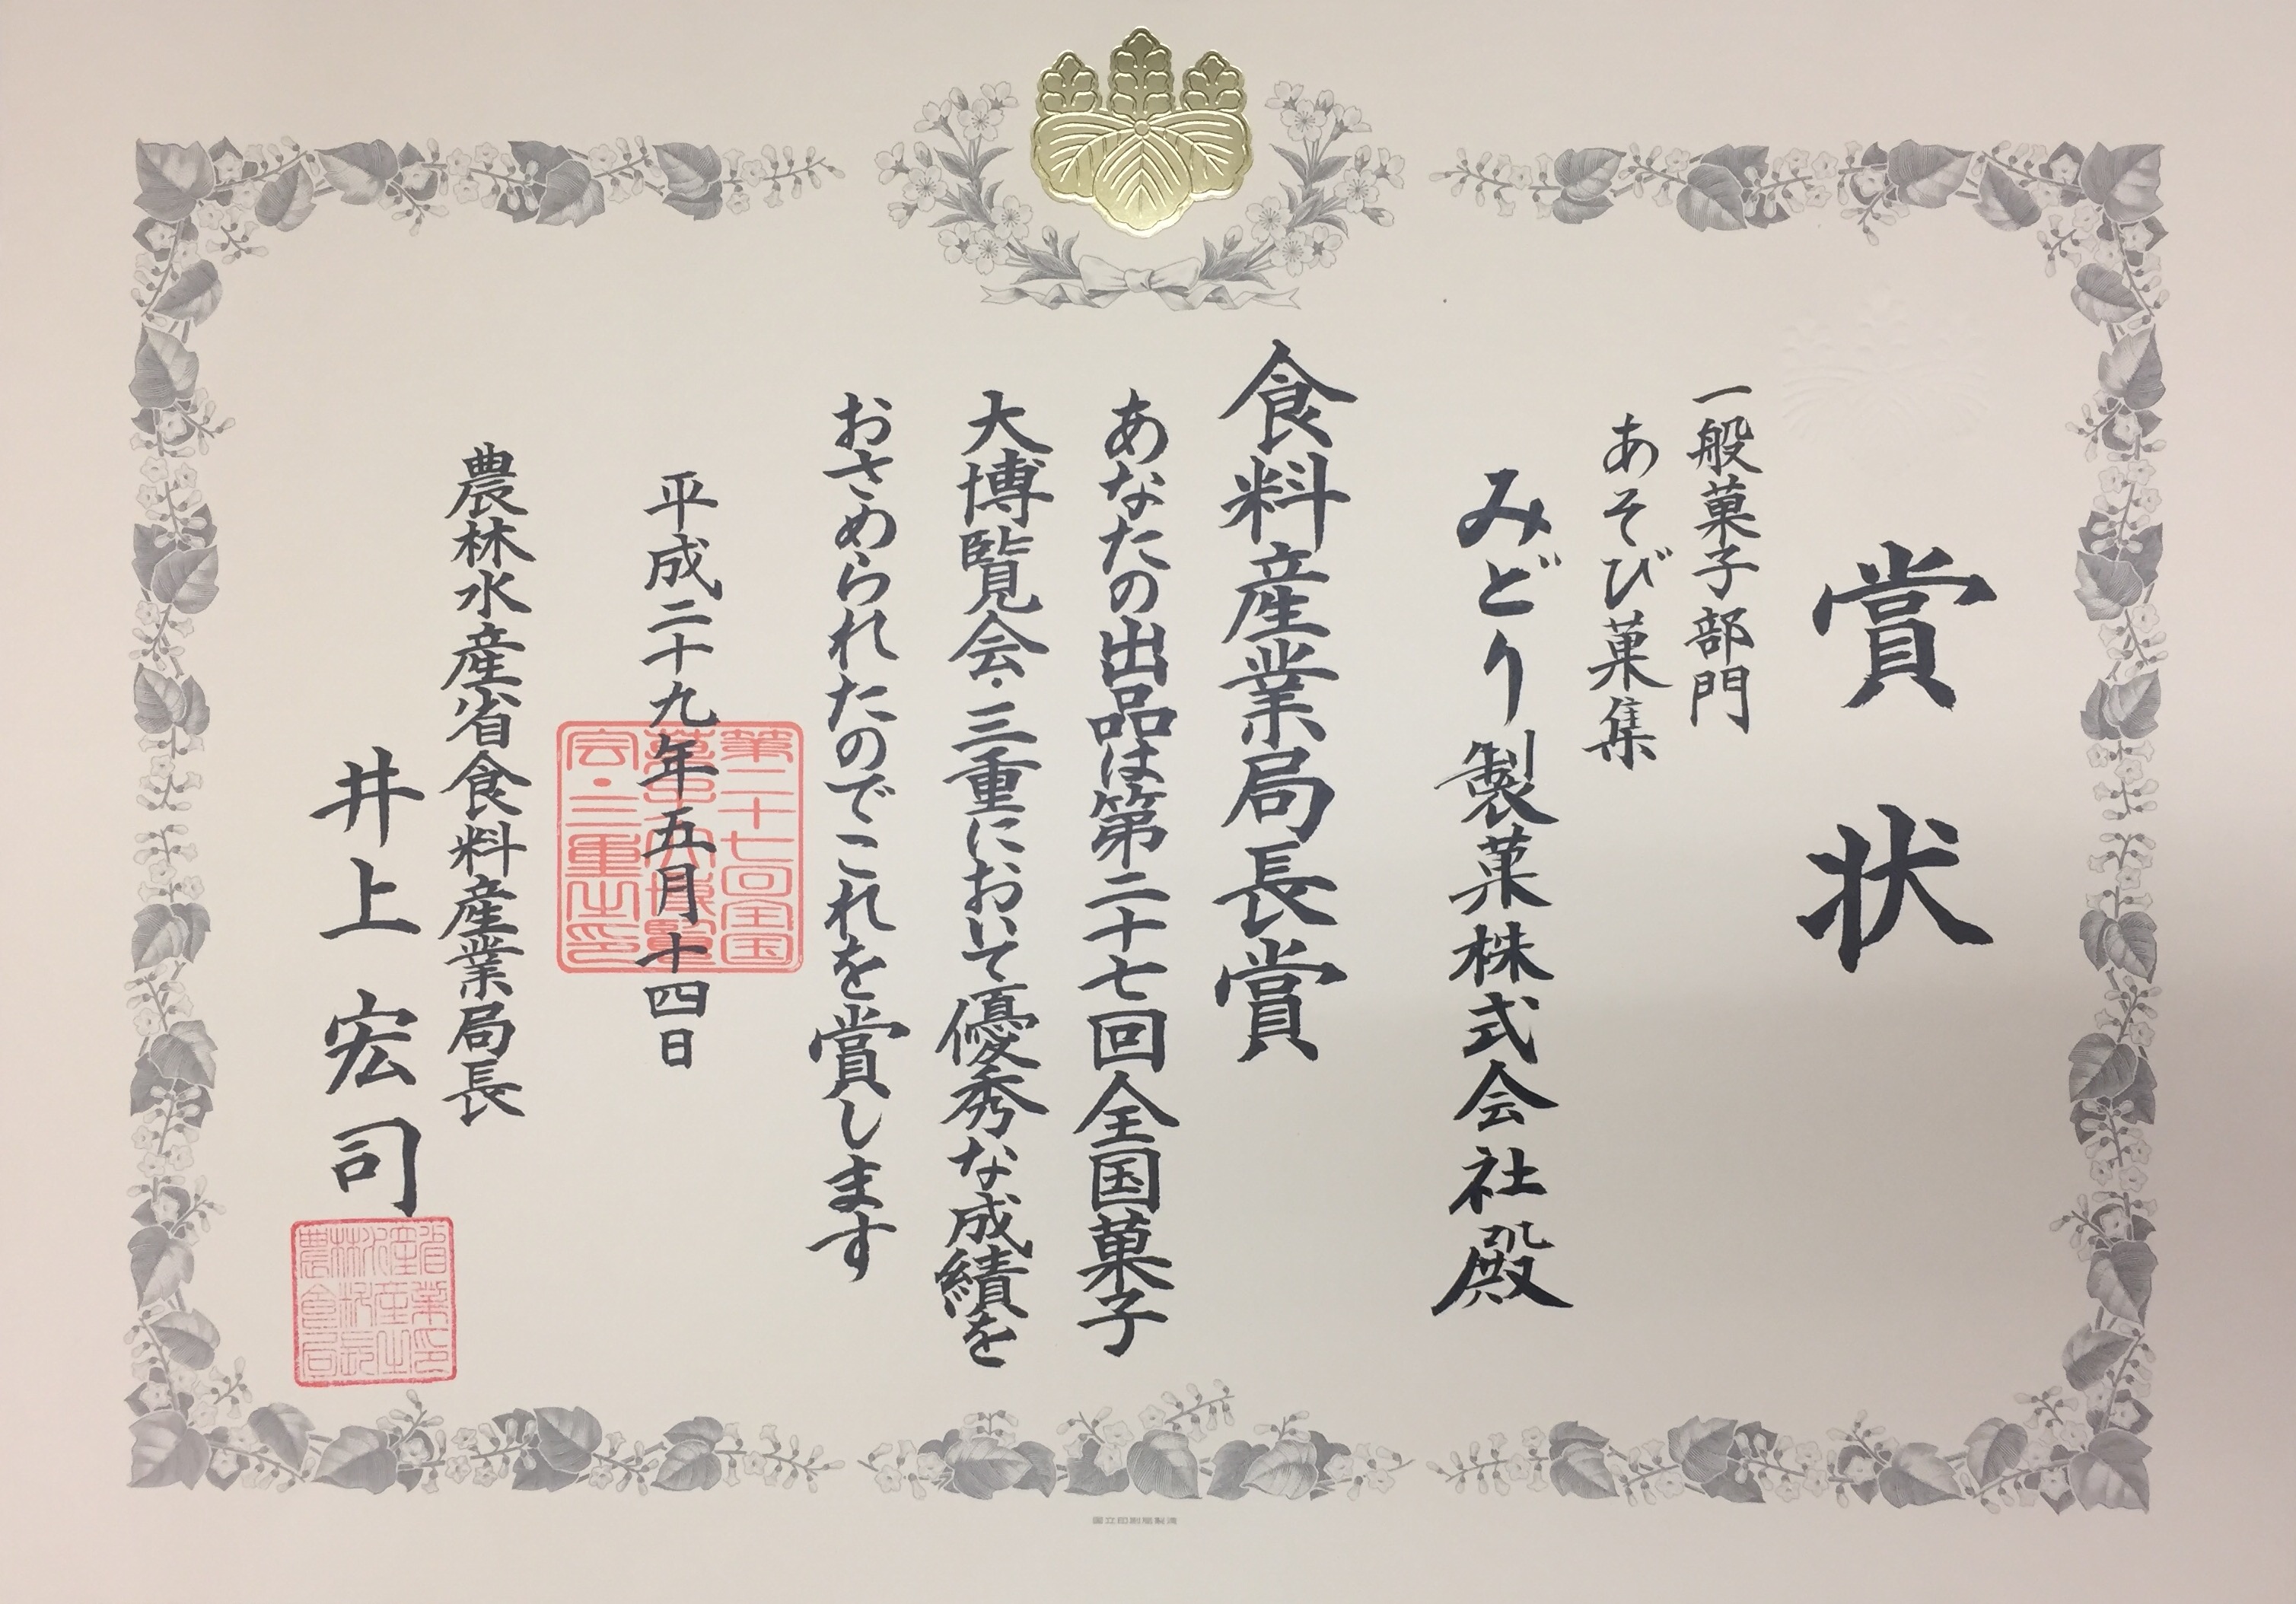 賞状
一般菓子部門
あそび菓集
みどり製菓株式会社殿
食料産業局長賞
あなたの出品は第二十七回全国菓子
大博覧会・三重において優秀な成績を
おさめられたのでこれを賞します
平成二十九年五月十四日
第二十七回全国
菓子大博覧
会・三重之印
農林水産省食料産業局長
井上宏司
國立印刷局製造